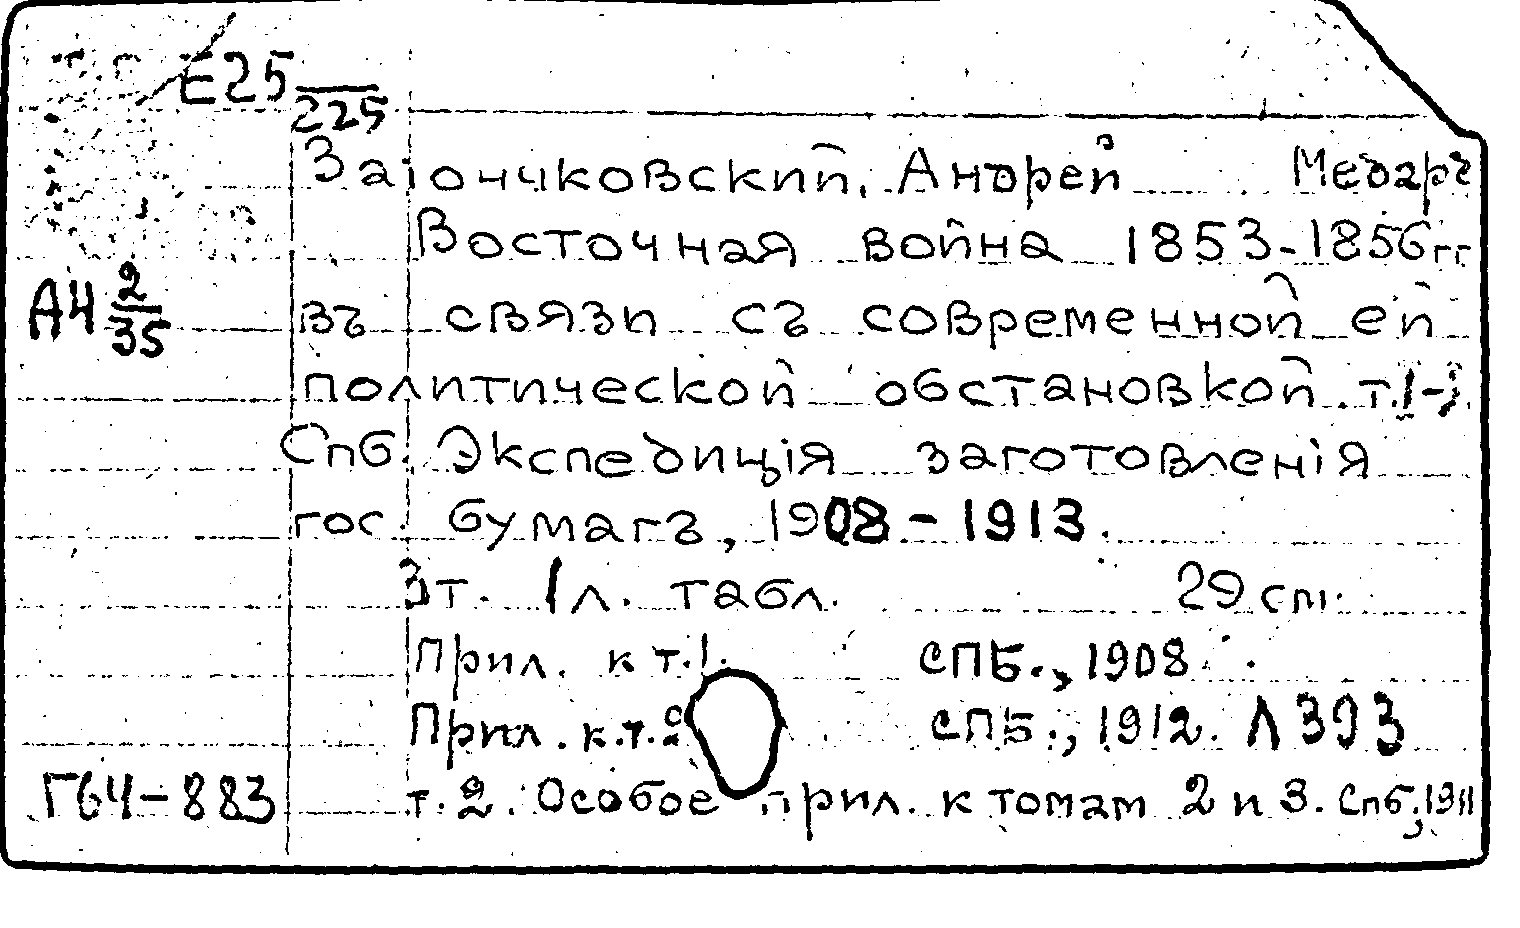 Е25
225
Заіончковский, Андрей Медардъ
Восточная война 1853-1856 гг
А4 2/35 въ связи съ современной ей
политической обстановкой. т.
Спб. Экспедиція заготовленія
гос. бумагъ, 1908-1913.
3т. 1 л. табл. 29 cm.
Прил. к т.1. СПБ., 1908
Прил. к.т.2 СПБ., 1912. Л 393
Г64-883 т. 2. Особое прил. к томам 2 и 3. Спб, 1911